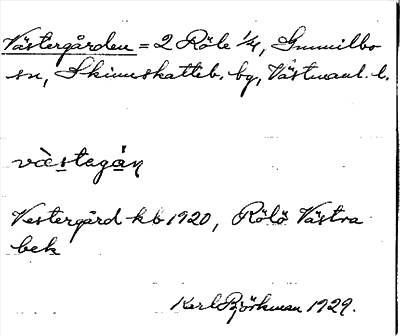 Västergården = 2 Röle 1/4, Gunnilbo
sn, Skinnskatteb. bg, Västmanl. l.
vä̀stagán
Vestergård kb 1920, Rölö Västra
bek
Karl Björkman 1929.